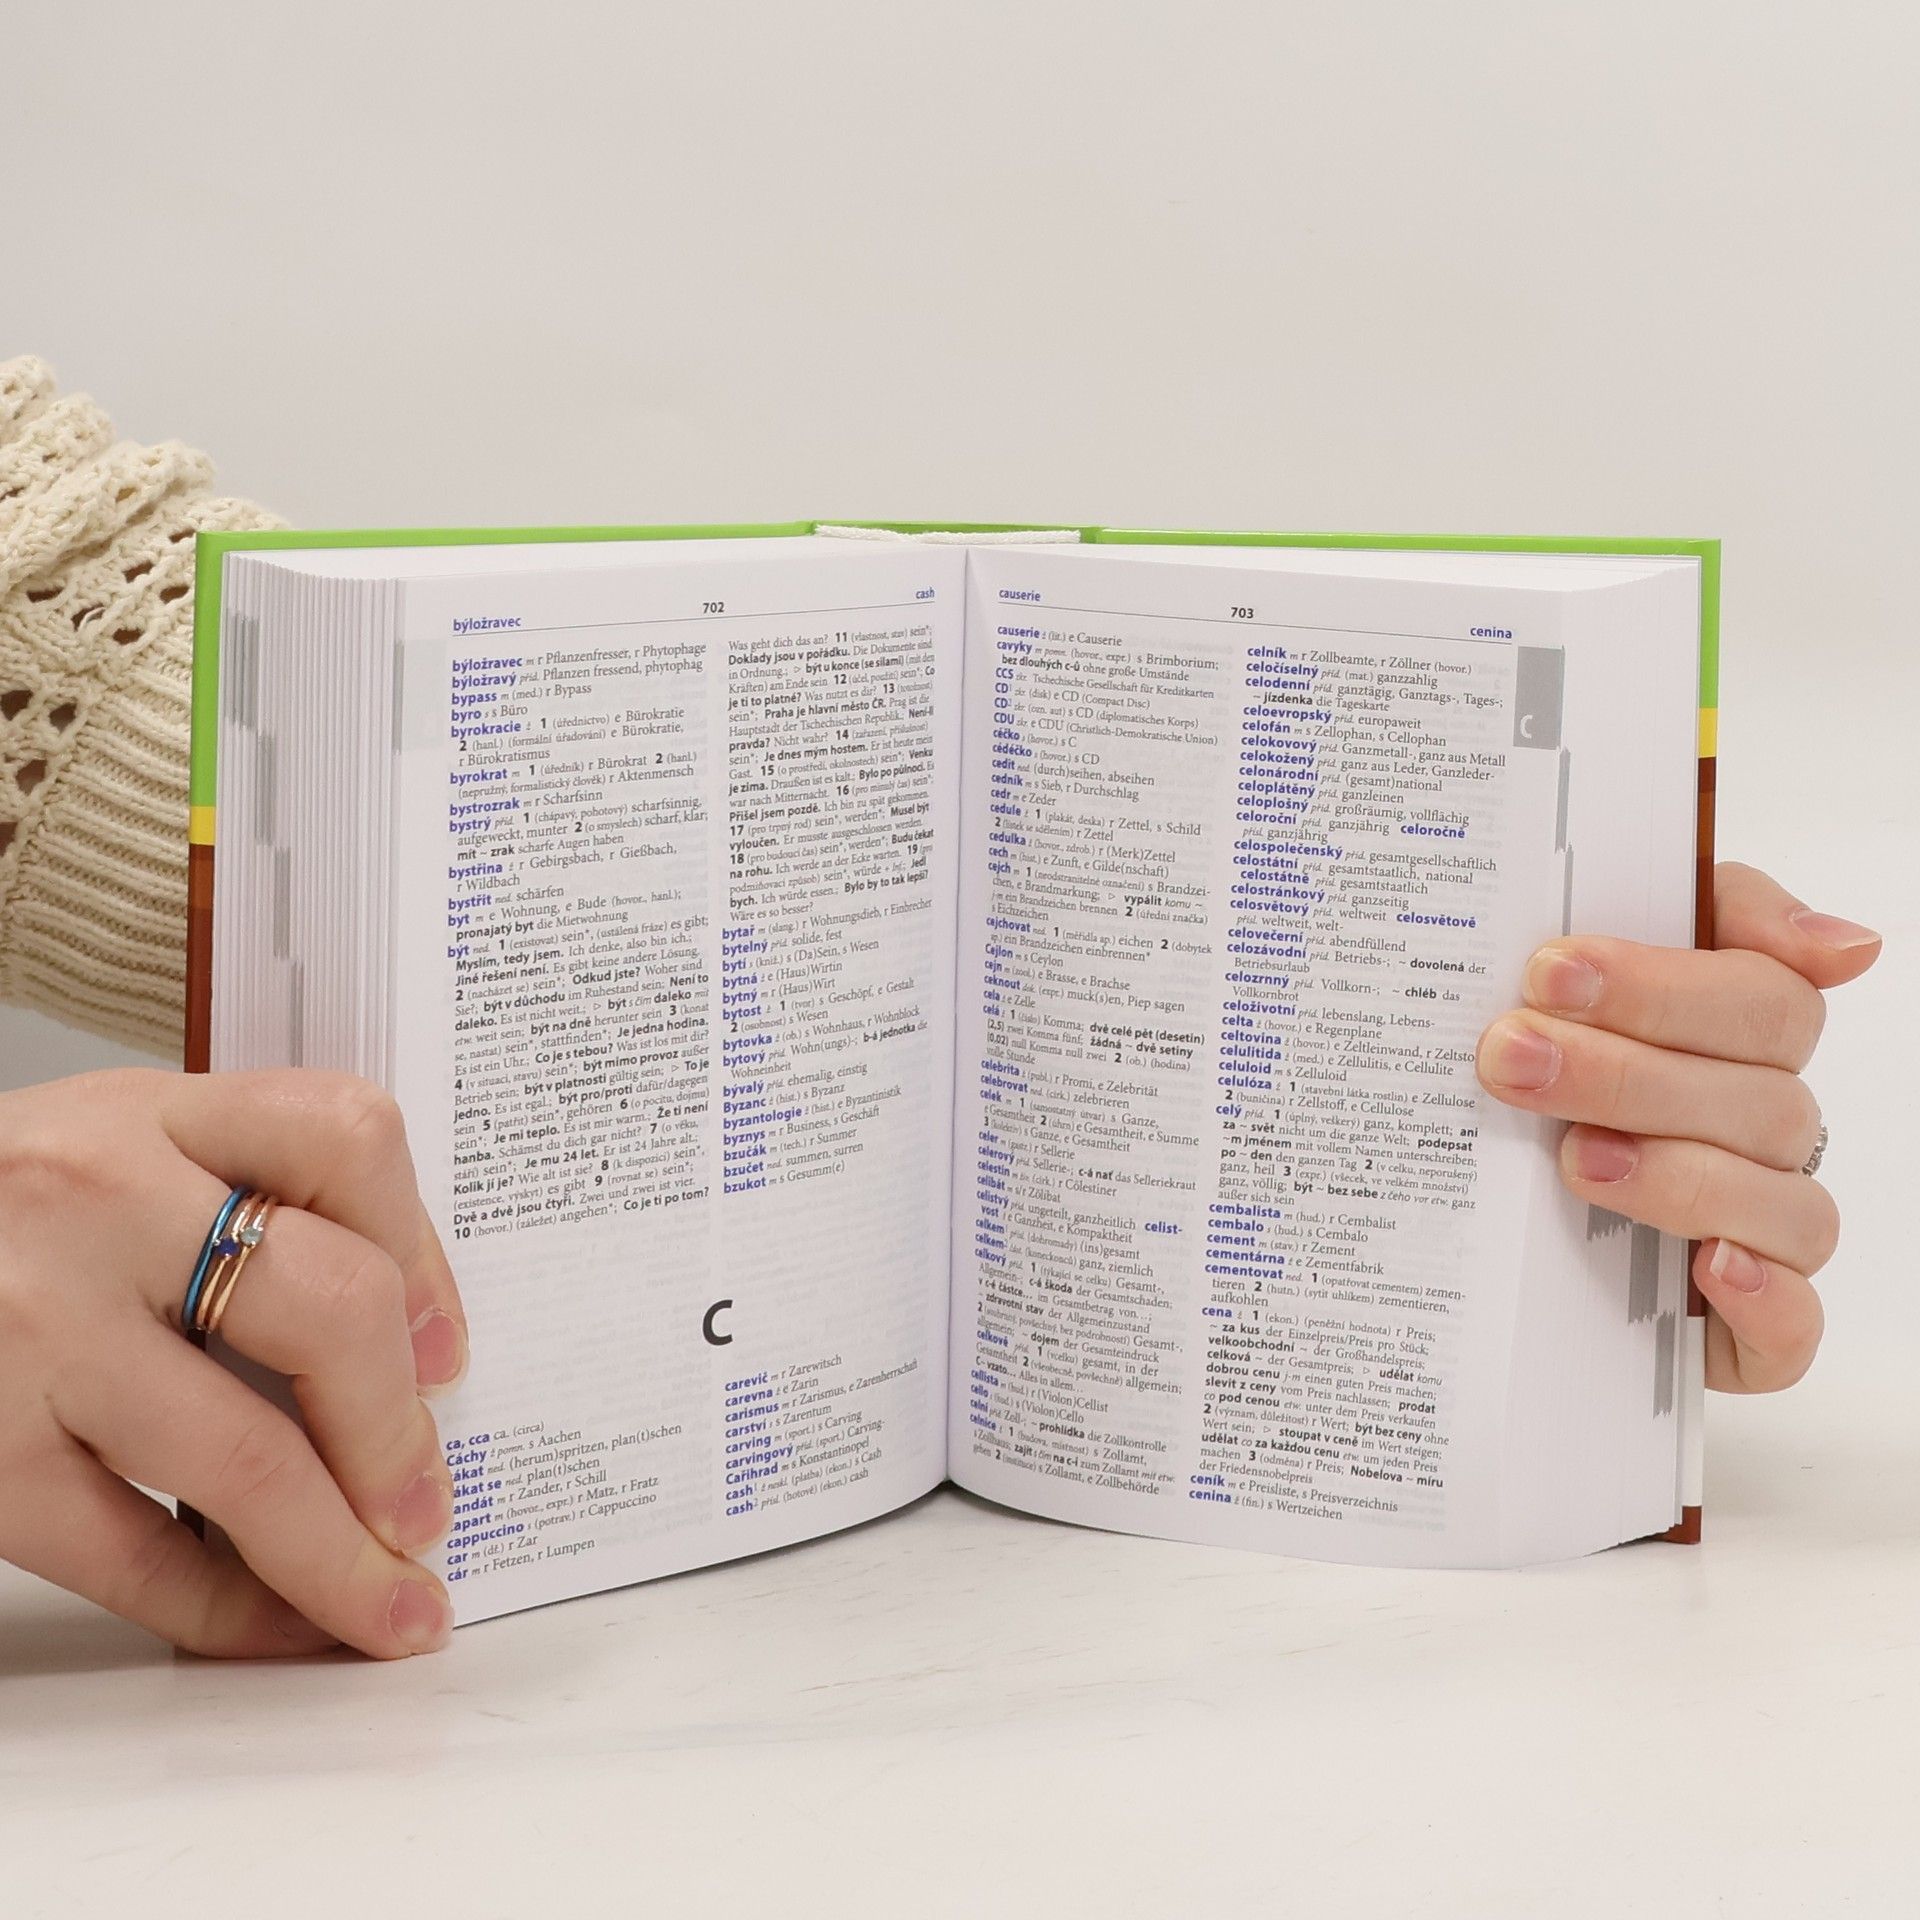 býložravec
702
cash
býložravec m r Pflanzenfresser, r Phytophage
býložravý příd. Pflanzen fressend, phytophag
bypass m (med.) r Bypass
byro s s Büro
byrokracie ž 1 (úřednictvo) e Bürokratie
2 (hanl.) (formální úřadování) e Bürokratie,
r Bürokratismus
byrokrat m 1 (úředník) r Bürokrat 2 (hanl.)
(nepružný, formalistický člověk) r Aktenmensch
bystrozrak m r Scharfsinn
bystrý příd. 1 (chápavý, pohotový) scharfsinnig,
aufgeweckt, munter 2 (o smyslech) scharf, klar;
mít ~ zrak scharfe Augen haben
bystřina ž r Gebirgsbach, r Gießbach,
r Wildbach
bystřit ned. schärfen
byt m e Wohnung, e Bude (hovor., hanl.);
pronajatý byt die Mietwohnung
být ned. 1 (existovat) sein*, (ustálená fráze) es gibt;
Myslím, tedy jsem. Ich denke, also bin ich.;
Jiné řešení není. Es gibt keine andere Lösung.
2 (nacházet se) sein*; Odkud jste? Woher sind
Sie?; být v důchodu im Ruhestand sein; Není to
daleko. Es ist nicht weit.; ▷ být s čím daleko mit
etw. weit sein; být na dně herunter sein 3 (konat
se, nastat) sein*, stattfinden*; Je jedna hodina.
Es ist ein Uhr.; Co je s tebou? Was ist los mit dir?
4 (v situaci, stavu) sein*; být mimo provoz außer
Betrieb sein; být v platnosti gültig sein; ▷ To je
jedno. Es ist egal.; být pro/proti dafür/dagegen
sein 5 (patřit) sein*, gehören 6 (o pocitu, dojmu)
sein*; Je mi teplo. Es ist mir warm.; Že ti není
hanba. Schämst du dich gar nicht? 7 (o věku,
stáří) sein*; Je mu 24 let. Er ist 24 Jahre alt.;
Kolik jí je? Wie alt ist sie? 8 (k dispozici) sein*,
(existence, výskyt) es gibt 9 (rovnat se) sein*;
Dvě a dvě jsou čtyři. Zwei und zwei ist vier.
10 (hovor.) (záležet) angehen*; Co je ti po tom?
Was geht dich das an? 11 (vlastnost, stav) sein*;
Doklady jsou v pořádku. Die Dokumente sind
in Ordnung.; ▷ být u konce (se silami) (mit den
Kräften) am Ende sein 12 (účel, použití) sein*; Co
je ti to platné? Was nutzt es dir? 13 (totožnost)
sein*; Praha je hlavní město ČR. Prag ist die
Hauptstadt der Tschechischen Republik.; Není-li
pravda? Nicht wahr? 14 (zařazení, příslušnost)
sein*; Je dnes mým hostem. Er ist heute mein
Gast. 15 (o prostředí, okolnostech) sein*; Venku
je zima. Draußen ist es kalt.; Bylo po půlnoci. Es
war nach Mitternacht. 16 (pro minulý čas) sein*;
Přišel jsem pozdě. Ich bin zu spät gekommen.
17 (pro trpný rod) sein*, werden*; Musel být
vyloučen. Er musste ausgeschlossen werden.
18 (pro budoucí čas) sein*, werden*; Budu čekat
na rohu. Ich werde an der Ecke warten. 19 (pro
podmiňovací způsob) sein*, würde + Inf.; Jedl
bych. Ich würde essen.; Bylo by to tak lepší?
Wäre es so besser?
bytař m (slang.) r Wohnungsdieb, r Einbrecher
bytelný příd. solide, fest
bytí s (kniž.) s (Da)Sein, s Wesen
bytná ž e (Haus)Wirtin
bytný m r (Haus)Wirt
bytost ž 1 (tvor) s Geschöpf, e Gestalt
2 (osobnost) s Wesen
bytovka ž (ob.) s Wohnhaus, r Wohnblock
bytový příd. Wohn(ungs)-; b-á jednotka die
Wohneinheit
bývalý příd. ehemalig, einstig
Byzanc ž (hist.) s Byzanz
byzantologie ž (hist.) e Byzantinistik
byznys m r Business, s Geschäft
bzučák m (tech.) r Summer
bzučet ned. summen, surren
bzukot m s Gesumm(e)
C
ca, cca ca. (circa)
Cáchy ž pomn. s Aachen
ákat ned. (herum)spritzen, plan(t)schen
ákat se ned. plan(t)schen
andát m r Zander, r Schill
apart m (hovor., expr.) r Matz, r Fratz
cappuccino s (potrav.) r Cappuccino
car m (dř.) r Zar
cár m r Fetzen, r Lumpen
carevič m r Zarewitsch
carevna ž e Zarin
carismus m r Zarismus, e Zarenherrschaft
carství s s Zarentum
carving m (sport.) s Carving
carvingový příd. (sport.) Carving-
Cařihrad m s Konstantinopel
cash¹ ž neskl. (platba) (ekon.) s Cash
cash² přísl. (hotově) (ekon.) cash
causerie
703
cenina
causerie ž (lit.) e Causerie
cavyky m pomn. (hovor., expr.) s Brimborium;
bez dlouhých c-ů ohne große Umstände
CCS zkr. Tschechische Gesellschaft für Kreditkarten
CD¹ zkr. (disk) e CD (Compact Disc)
CD² zkr. (ozn. aut) s CD (diplomatisches Korps)
CDU zkr. e CDU (Christlich-Demokratische Union)
céčko s (hovor.) s C
cédéčko s (hovor.) s CD
cedit ned. (durch)seihen, abseihen
cedník m s Sieb, r Durchschlag
cedr m e Zeder
cedule ž 1 (plakát, deska) r Zettel, s Schild
2 (lístek se sdělením) r Zettel
cedulka ž (hovor., zdrob.) r (Merk)Zettel
cech m (hist.) e Zunft, e Gilde(nschaft)
cejch m 1 (neodstranitelné označení) s Brandzei-
chen, e Brandmarkung; ▷ vypálit komu ~
j-m ein Brandzeichen brennen 2 (úřední značka)
s Eichzeichen
cejchovat ned. 1 (měřidla ap.) eichen 2 (dobytek
ap.) ein Brandzeichen einbrennen*
Cejlon m s Ceylon
cejn m (zool.) e Brasse, e Brachse
ceknout dok. (expr.) muck(s)en, Piep sagen
cela ž e Zelle
celá ž 1 (číslo) Komma; dvě celé pět (desetin)
(2,5) zwei Komma fünf; žádná ~ dvě setiny
(0,02) null Komma null zwei 2 (ob.) (hodina)
volle Stunde
celebrita ž (publ.) r Promi, e Zelebrität
celebrovat ned. (círk.) zelebrieren
celek m 1 (samostatný útvar) s Ganze,
e Gesamtheit 2 (úhrn) e Gesamtheit, e Summe
3 (kolektiv) s Ganze, e Gesamtheit
celer m (potr.) r Sellerie
celerový příd. Sellerie-; c-á nať das Selleriekraut
celestin m živ. (círk.) r Cölestiner
celibát m s/r Zölibat
celistvý příd. ungeteilt, ganzheitlich celist-
vost ž e Ganzheit, e Kompaktheit
celkem¹ přísl. (dohromady) (ins)gesamt
celkem² část. (koneckonců) ganz, ziemlich
celkový příd. 1 (týkající se celku) Gesamt-,
Allgemein-; c-á škoda der Gesamtschaden;
v c-é částce... im Gesamtbetrag von...;
~ zdravotní stav der Allgemeinzustand
2 (souhrnný, povšechný, bez podrobností) Gesamt-,
allgemein; ~ dojem der Gesamteindruck
celkově přísl. 1 (vcelku) gesamt, in der
Gesamtheit 2 (všeobecně, povšechně) allgemein;
C~ vzato... Alles in allem...
cellista m (hud.) r (Violon)Cellist
cello s (hud.) s (Violon)Cello
celní příd. Zoll-; ~ prohlídka die Zollkontrolle
celnice ž 1 (budova, místnost) s Zollamt,
s Zollhaus; zajít s čím na c-i zum Zollamt mit etw.
gehen 2 (instituce) s Zollamt, e Zollbehörde
celník m r Zollbeamte, r Zöllner (hovor.)
celočíselný příd. (mat.) ganzzahlig
celodenní příd. ganztägig, Ganztags-, Tages-;
~ jízdenka die Tageskarte
celoevropský příd. europaweit
celofán m s Zellophan, s Cellophan
celokovový příd. Ganzmetall-, ganz aus Metall
celokožený příd. ganz aus Leder, Ganzleder-
celonárodní příd. (gesamt)national
celoplátěný příd. ganzleinen
celoplošný příd. großräumig, vollflächig
celoroční příd. ganzjährig celoročně
přísl. ganzjährig
celospolečenský příd. gesamtgesellschaftlich
celostátní příd. gesamtstaatlich, national
celostátně přísl. gesamtstaatlich
celostránkový příd. ganzseitig
celosvětový příd. weltweit celosvětově
přísl. weltweit, welt-
celovečerní příd. abendfüllend
celozávodní příd. Betriebs-; ~ dovolená der
Betriebsurlaub
celozrnný příd. Vollkorn-; ~ chléb das
Vollkornbrot
celoživotní příd. lebenslang, Lebens-
celta ž (hovor.) e Regenplane
celtovina ž (hovor.) e Zeltleinwand, r Zeltsto
celulitida ž (med.) e Zellulitis, e Cellulite
celuloid m s Zelluloid
celulóza ž 1 (stavební látka rostlin) e Zellulose
2 (buničina) r Zellstoff, e Cellulose
celý příd. 1 (úplný, veškerý) ganz, komplett; ani
za ~ svět nicht um die ganze Welt; podepsat
~m jménem mit vollem Namen unterschreiben;
po ~ den den ganzen Tag 2 (v celku, neporušený)
ganz, heil 3 (expr.) (všecek, ve velkém množství)
ganz, völlig; být ~ bez sebe z čeho vor etw. ganz
außer sich sein
cembalista m (hud.) r Cembalist
cembalo s (hud.) s Cembalo
cement m (stav.) r Zement
cementárna ž e Zementfabrik
cementovat ned. 1 (opatřovat cementem) zemen-
tieren 2 (hutn.) (sytit uhlíkem) zementieren,
aufkohlen
cena ž 1 (ekon.) (peněžní hodnota) r Preis;
~ za kus der Einzelpreis/Preis pro Stück;
velkoobchodní ~ der Großhandelspreis;
celková ~ der Gesamtpreis; ▷ udělat komu
dobrou cenu j-m einen guten Preis machen;
slevit z ceny vom Preis nachlassen; prodat
co pod cenou etw. unter dem Preis verkaufen
2 (význam, důležitost) r Wert; být bez ceny ohne
Wert sein; ▷ stoupat v ceně im Wert steigen;
udělat co za každou cenu etw. um jeden Preis
machen 3 (odměna) r Preis; Nobelova ~ míru
der Friedensnobelpreis
ceník m e Preisliste, s Preisverzeichnis
cenina ž (fin.) s Wertzeichen
C